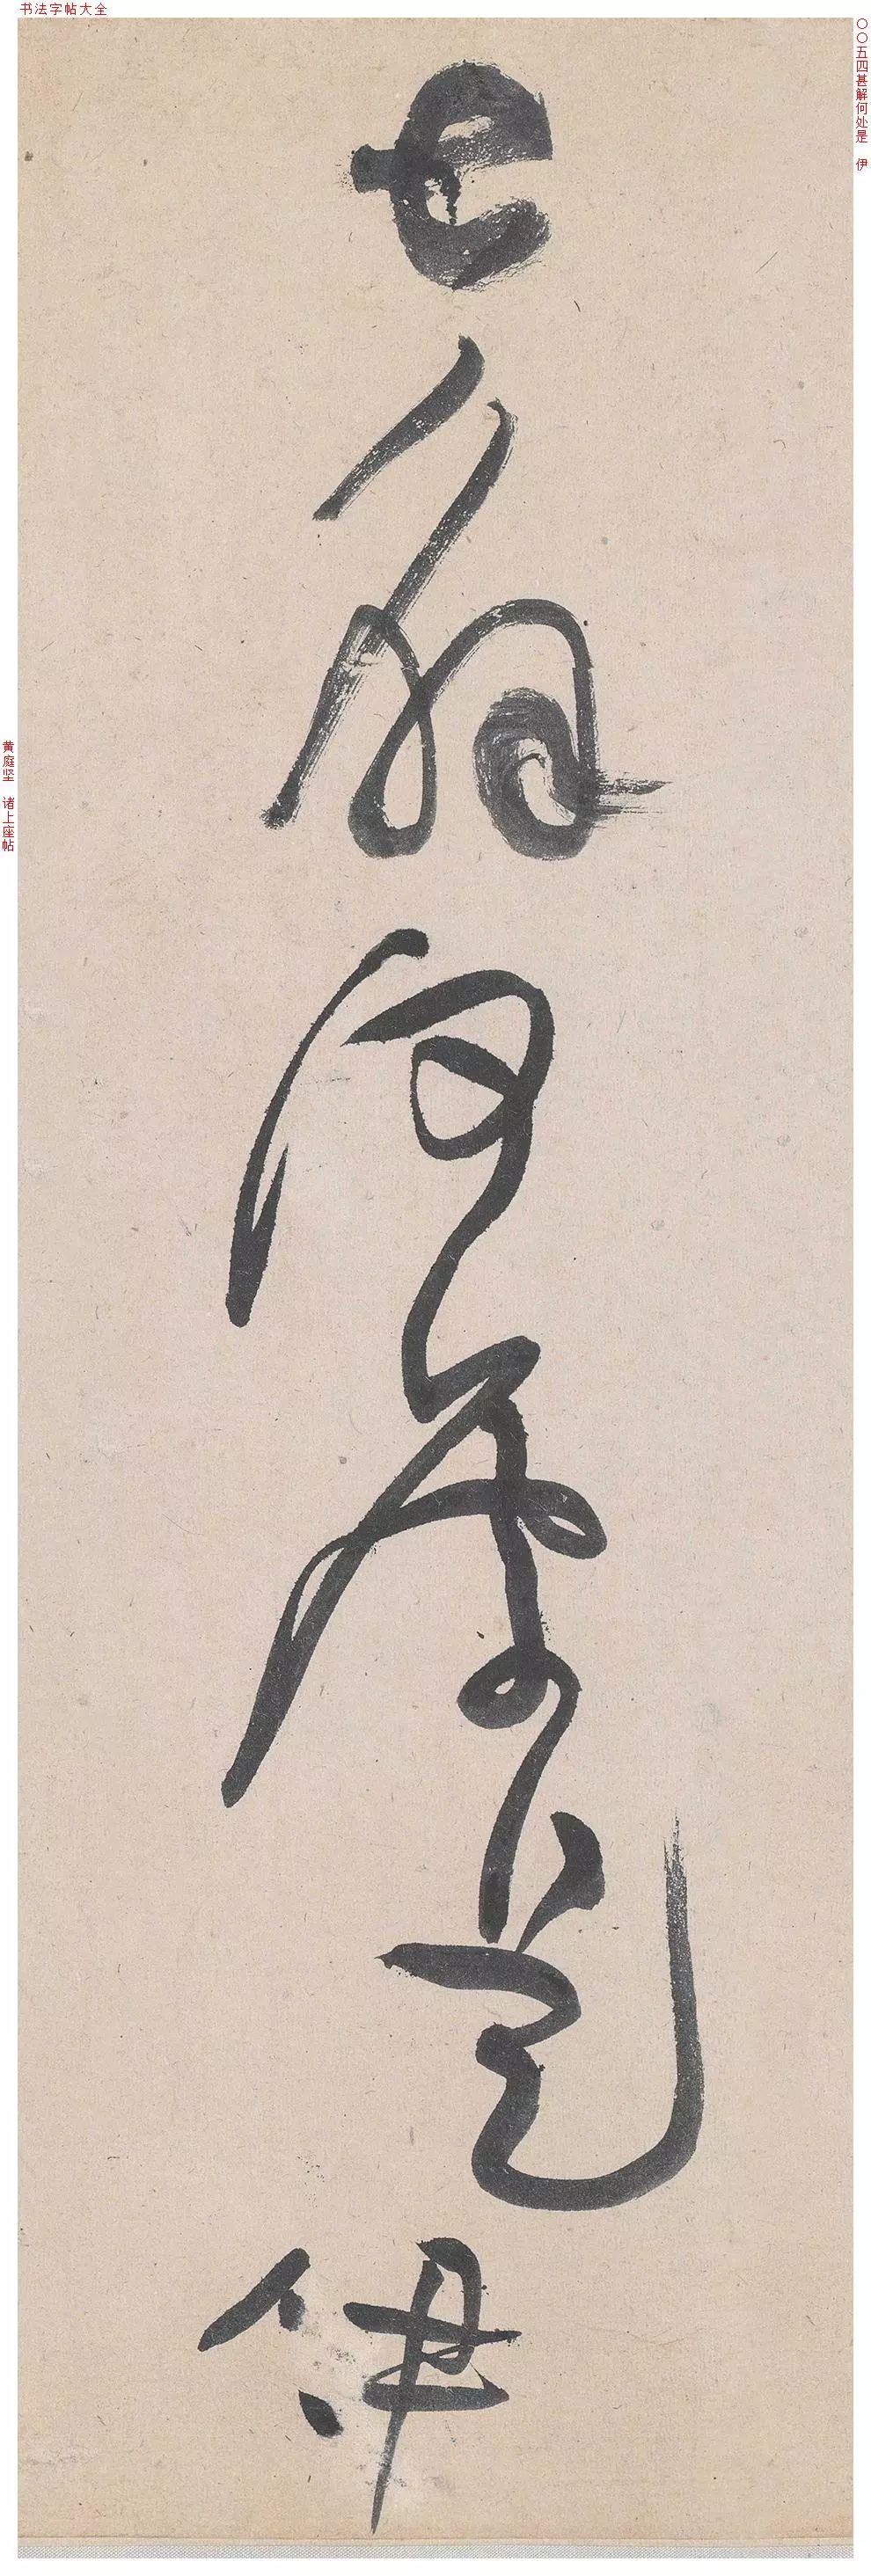 书法字帖大全
〇〇五四甚解何处是 伊
甚解何处是伊
黄庭坚 诸上座帖